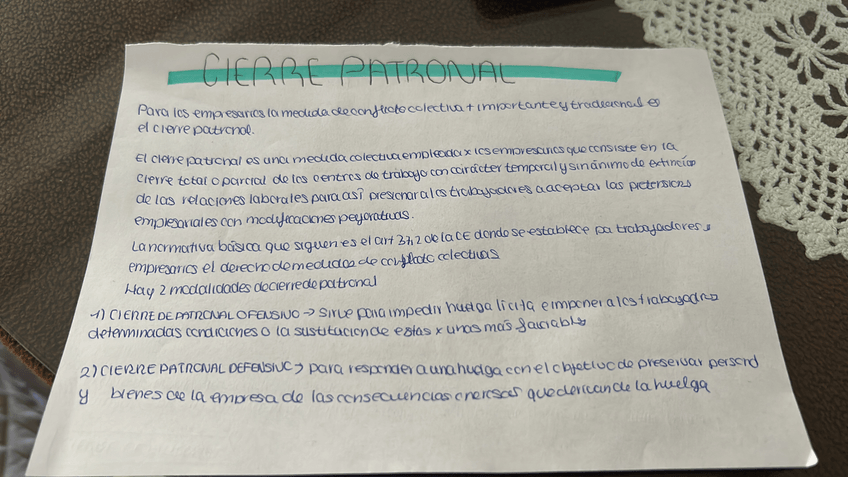 CIERRE PATRONAL
Para los empresarios la medida de conflicto colectiva + importante y tradicional es
el cierre patronal.
El cierre patronal es una medida colectiva empleada x los empresarios que consiste en la
cierre total o parcial de los centros de trabajo con carácter temporal y sin ánimo de extinción
de las relaciones laborales para así presionar a los trabajadores a aceptar las pretensiones
empresariales con modificaciones peyorativas.
La normativa básica que siguen es el art 37,2 de la CE donde se establece pa trabajadores y
empresarios el derecho de medidas de conflicto colectivas
Hay 2 modalidades de cierre de patronal
1) CIERRE DE PATRONAL OFENSIVO → sirve para impedir huelga lícita e imponer a los trabajadores
determinadas condiciones o la sustitucion de estas x unas más favorables
2) CIERRE PATRONAL DEFENSIVO → para responder a una huelga con el objetivo de preservar personal
y bienes de la empresa de las consecuencias onerosas que derivan de la huelga